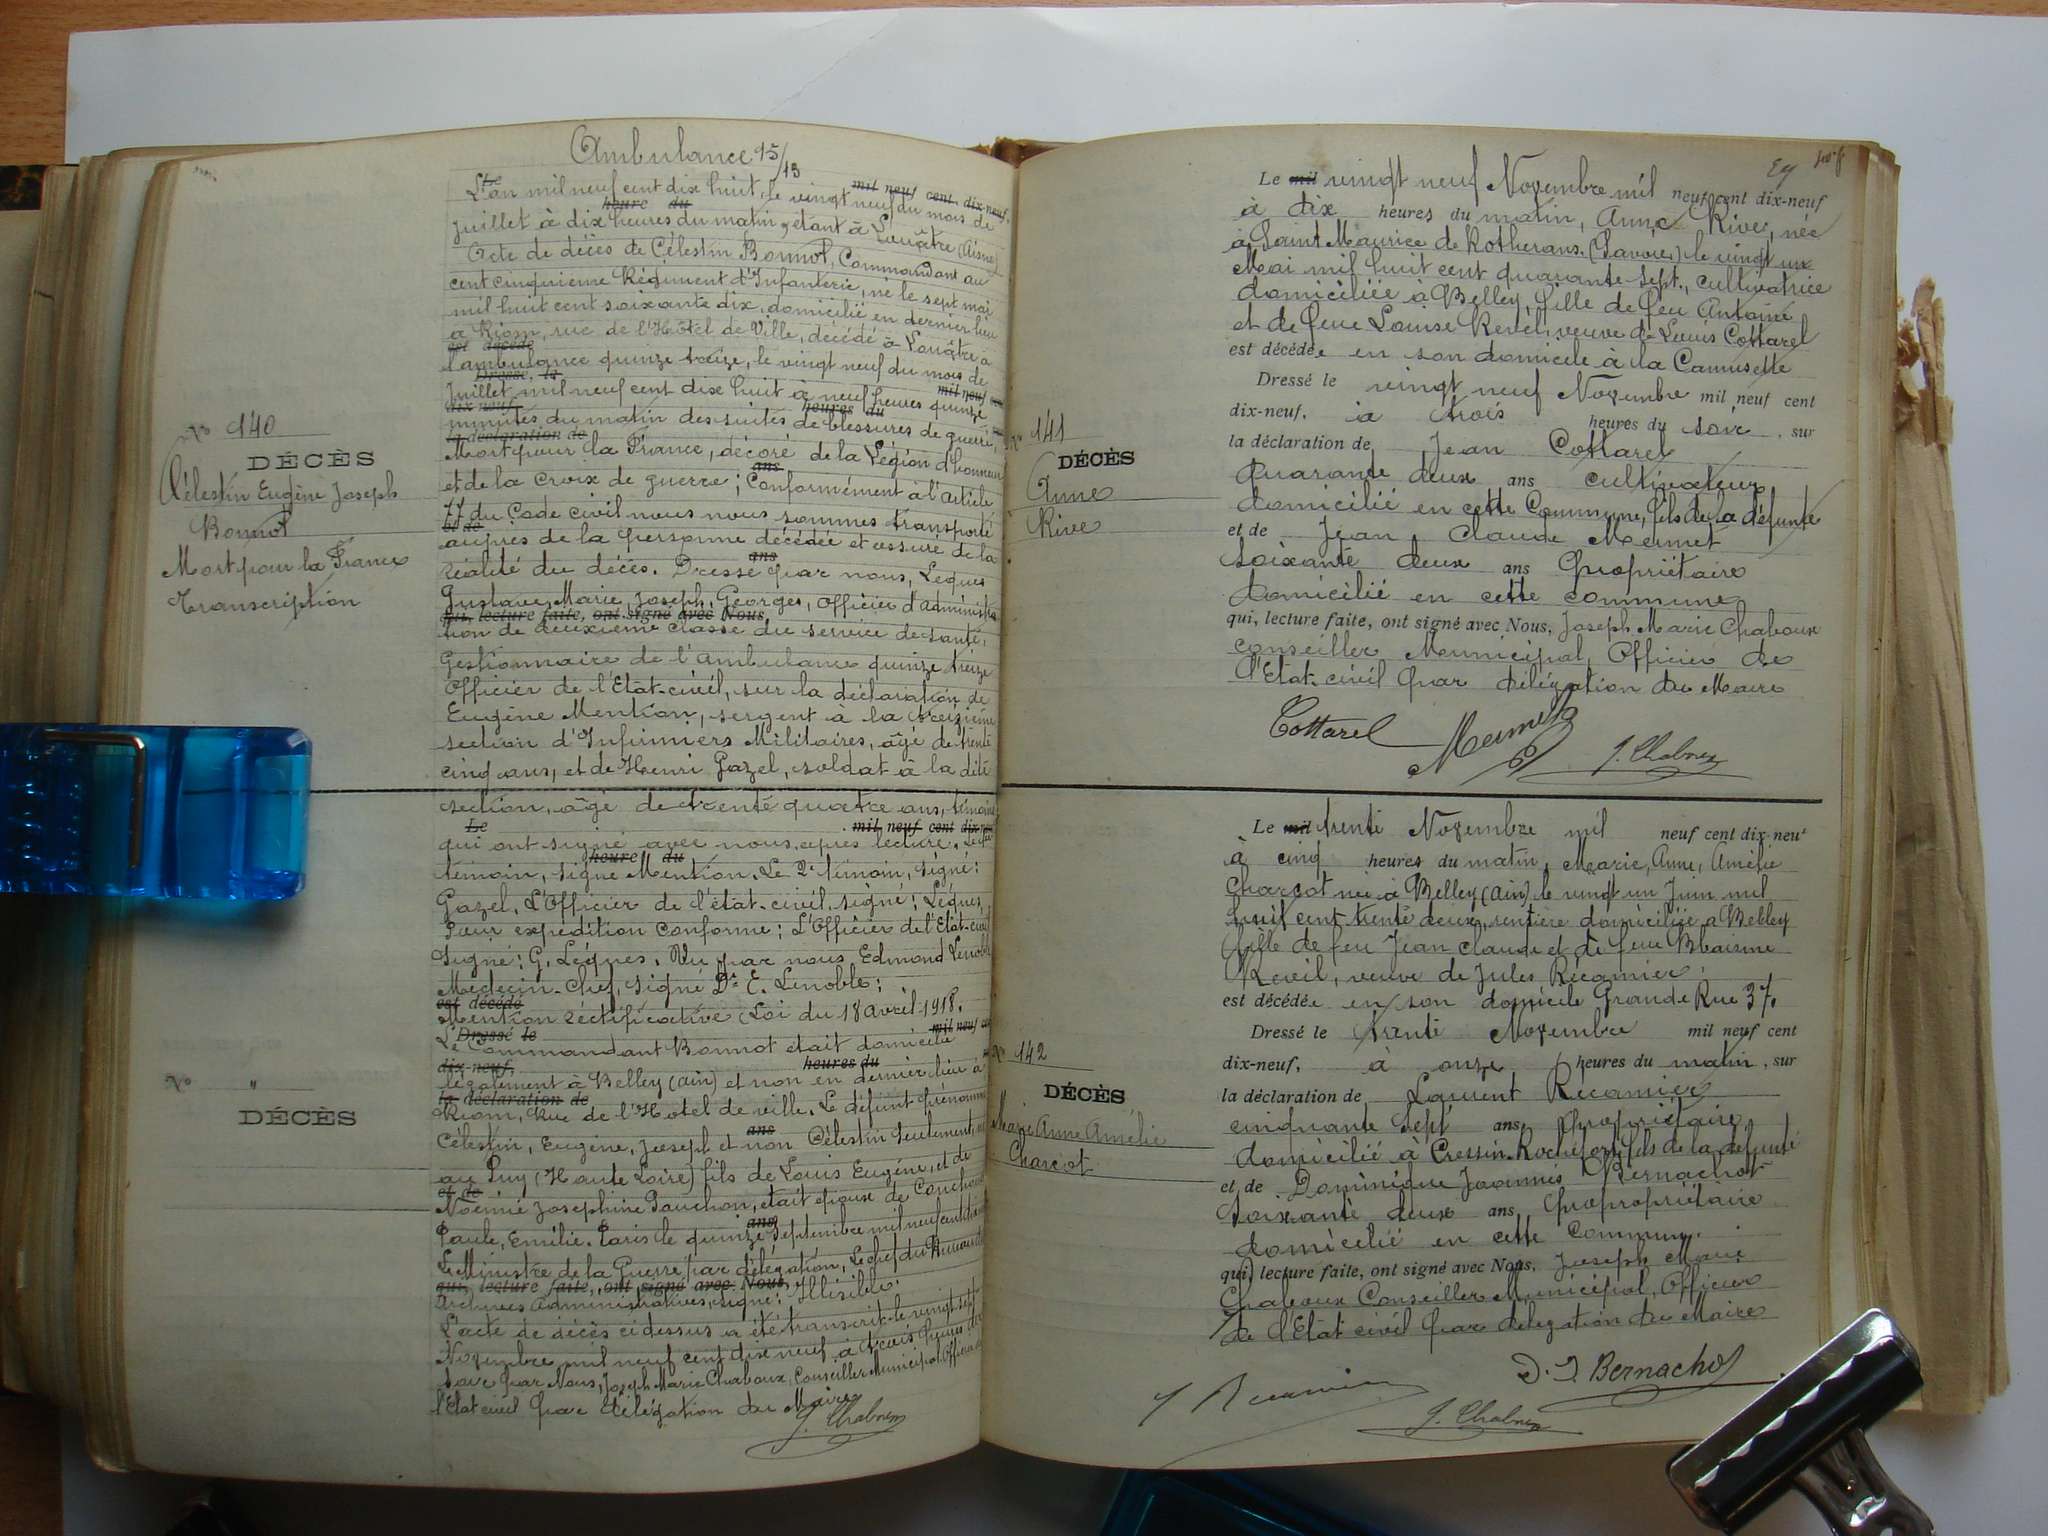 Ambulance 15/13
Le
L'an mil neuf cent dix huit, le vingt neuf du mois de
mil neuf cent dix-neuf,
heure du
Juillet à dix heures du matin, étant à Louâtre (Aisne)
Acte de décès de Célestin Bonnot, Commandant au
cent cinquième Régiment d'Infanterie, né le sept mai
mil huit cent soixante dix, domicilié en dernier lieu
à Riom, rue de l'Hotel de Ville, décédé à Louâtre à
est décédé
l'ambulance quinze treize, le vingt neuf du mois de
Dressé le
Juillet mil neuf cent dix huit à neuf heures quinze
mil neuf cent
dix-neuf, heures du
minutes du matin des suites de blessures de guerre,
la déclaration de
Mort pour la France, décoré de la Légion d'honneur
ans
et de la Croix de guerre; Conformément à l'article
77 du Code civil nous nous sommes transporté
et de
auprès de la personne décédée et assuré de la
ans
réalité du décès. Dressé par nous, Lèques
Gustave, Marie, Joseph, Georges, officier d'administra
qui, lecture faite, ont signé avec Nous,
tion de deuxième classe du service de santé,
Gestionnaire de l'ambulance quinze treize
Officier de l'Etat-civil, sur la déclaration de
Eugène Mention, sergent à la treizième
section d'Infirmiers Militaires, âgé de trente
cinq ans, et de Henri Gazel, soldat à la dite
section, âgé de trente quatre ans, témoins
Le mil neuf cent dix-neuf
qui ont signé avec nous après lecture. Le 1er
heure du
témoin, signé Mention. Le 2e témoin, signé:
Gazel. L'Officier de l'état-civil, signé: Lèques,
Pour expédition conforme: L'Officier de l'Etat-civil
Signé: G. Lèques. Vu par nous Edmond Lenoble
Médecin-Chef, signé Dr E. Lenoble;
est décédé
Mention rectificative (Loi du 18 avril 1918.
Dressé le mil neuf cent
Le Commandant Bonnot était domicilié
dix-neuf, heures du
légalement à Belley (ain) et non en dernier lieu à
la déclaration de
Riom, Rue de l'Hotel de ville. Le défunt prénommé
ans
Célestin, Eugène, Joseph et non Célestin seulement, né
au Puy (Haute Loire) fils de Louis Eugène, et de
et de
Noémie Josephine Pauchon, était époux de
ans
Paule, Emilie. Paris le quinze septembre mil neuf cent
Le Ministre de la Guerre par délégation, Le chef du Bureau des
qui, lecture faite, ont signé avec Nous,
Archives Administratives, signé: Illisible.
L'acte de décès ci dessus a été transcrit le vingt sept
Novembre mil neuf cent dix neuf, à trois heures du
soir par Nous, Joseph Marie Chaboux, Conseiller Municipal Officier de
l'Etat civil par délégation du Maire
J. Chaboux
No 140
DÉCÈS
Célestin Eugène Joseph
Bonnot
Mort pour la France
Transcription
No "
DÉCÈS
Le mil vingt neuf Novembre mil neuf cent dix-neuf
à dix heures du matin, Anne Rive, née
à Saint Maurice de Rotherans (Savoie) le vingt un
Mai mil huit cent quarante sept, cultivatrice
domiciliée à Belley, fille de feu Antoine
et de feue Louise Revel, veuve de Louis Cottarel
est décédée en son domicile à la Camusette
Dressé le vingt neuf Novembre mil neuf cent
dix-neuf, à trois heures du soir, sur
la déclaration de Jean Cottarel
quarante deux ans cultivateur
domicilié en cette Commune, fils de la défunte
et de Jean Claude Mermet
soixante deux ans Propriétaire
domicilié en cette commune
qui, lecture faite, ont signé avec Nous, Joseph Marie Chaboux
conseiller Municipal, Officier de
l'Etat-civil par délégation du Maire
Cottarel Mermet J. Chaboux
No 141
DÉCÈS
Anne
Rive
Le mil trente Novembre mil neuf cent dix-neuf
à cinq heures du matin, Marie, Anne, Amélie
Charcot née à Belley (ain) le vingt un Juin mil
huit cent trente deux, rentière domiciliée à Belley
fille de feu Jean Claude et de feue
Revil, veuve de Jules Récamier,
est décédée en son domicile Grande Rue 37.
Dressé le trente Novembre mil neuf cent
dix-neuf, à onze heures du matin, sur
la déclaration de Laurent Récamier
cinquante sept ans, Propriétaire
domicilié à Cressin-Rochefort, fils de la défunte
et de Dominique Joannès Bernachot
soixante deux ans, Propriétaire
domicilié en cette Commune.
qui, lecture faite, ont signé avec Nous, Joseph Marie
Chaboux Conseiller Municipal, Officier
de l'Etat civil par délégation du Maire
D. J. Bernachot
Récamier J. Chaboux
No 142
DÉCÈS
Marie Anne Amélie
Charcot